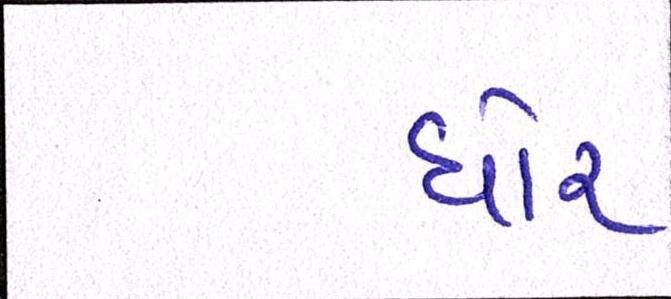 ઘોર